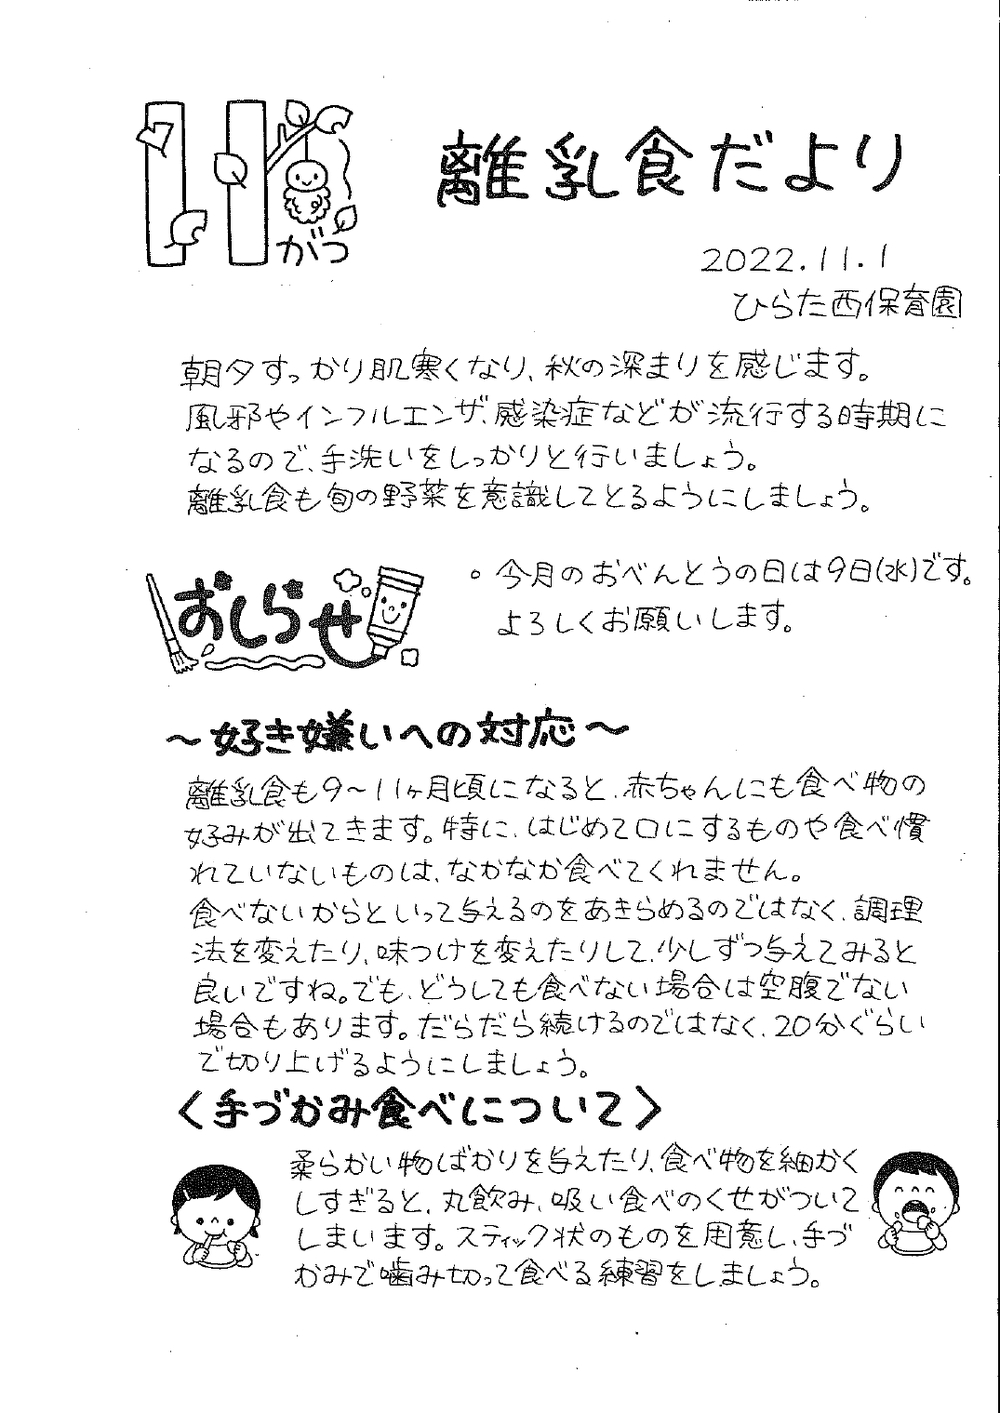 11がつ
離乳食だより
2022.11.1
ひらた西保育園
朝夕すっかり肌寒くなり、秋の深まりを感じます。
風邪やインフルエンザ、感染症などが流行する時期に
なるので、手洗いをしっかりと行いましょう。
離乳食も旬の野菜を意識してとるようにしましょう。
おしらせ
。今月のおべんとうの日は9日(水)です。
よろしくお願いします。
～好き嫌いへの対応～
離乳食も9～11ヶ月頃になると、赤ちゃんにも食べ物の
好みが出てきます。特に、はじめて口にするものや食べ慣
れていないものは、なかなか食べてくれません。
食べないからといって与えるのをあきらめるのではなく、調理
法を変えたり、味つけを変えたりして、少しずつ与えてみると
良いですね。でも、どうしても食べない場合は空腹でない
場合もあります。だらだら続けるのではなく、20分ぐらい
で切り上げるようにしましょう。
〈手づかみ食べについて〉
柔らかい物ばかりを与えたり、食べ物を細かく
しすぎると、丸飲み、吸い食べのくせがついて
しまいます。スティック状のものを用意し、手づ
かみで噛み切って食べる練習をしましょう。